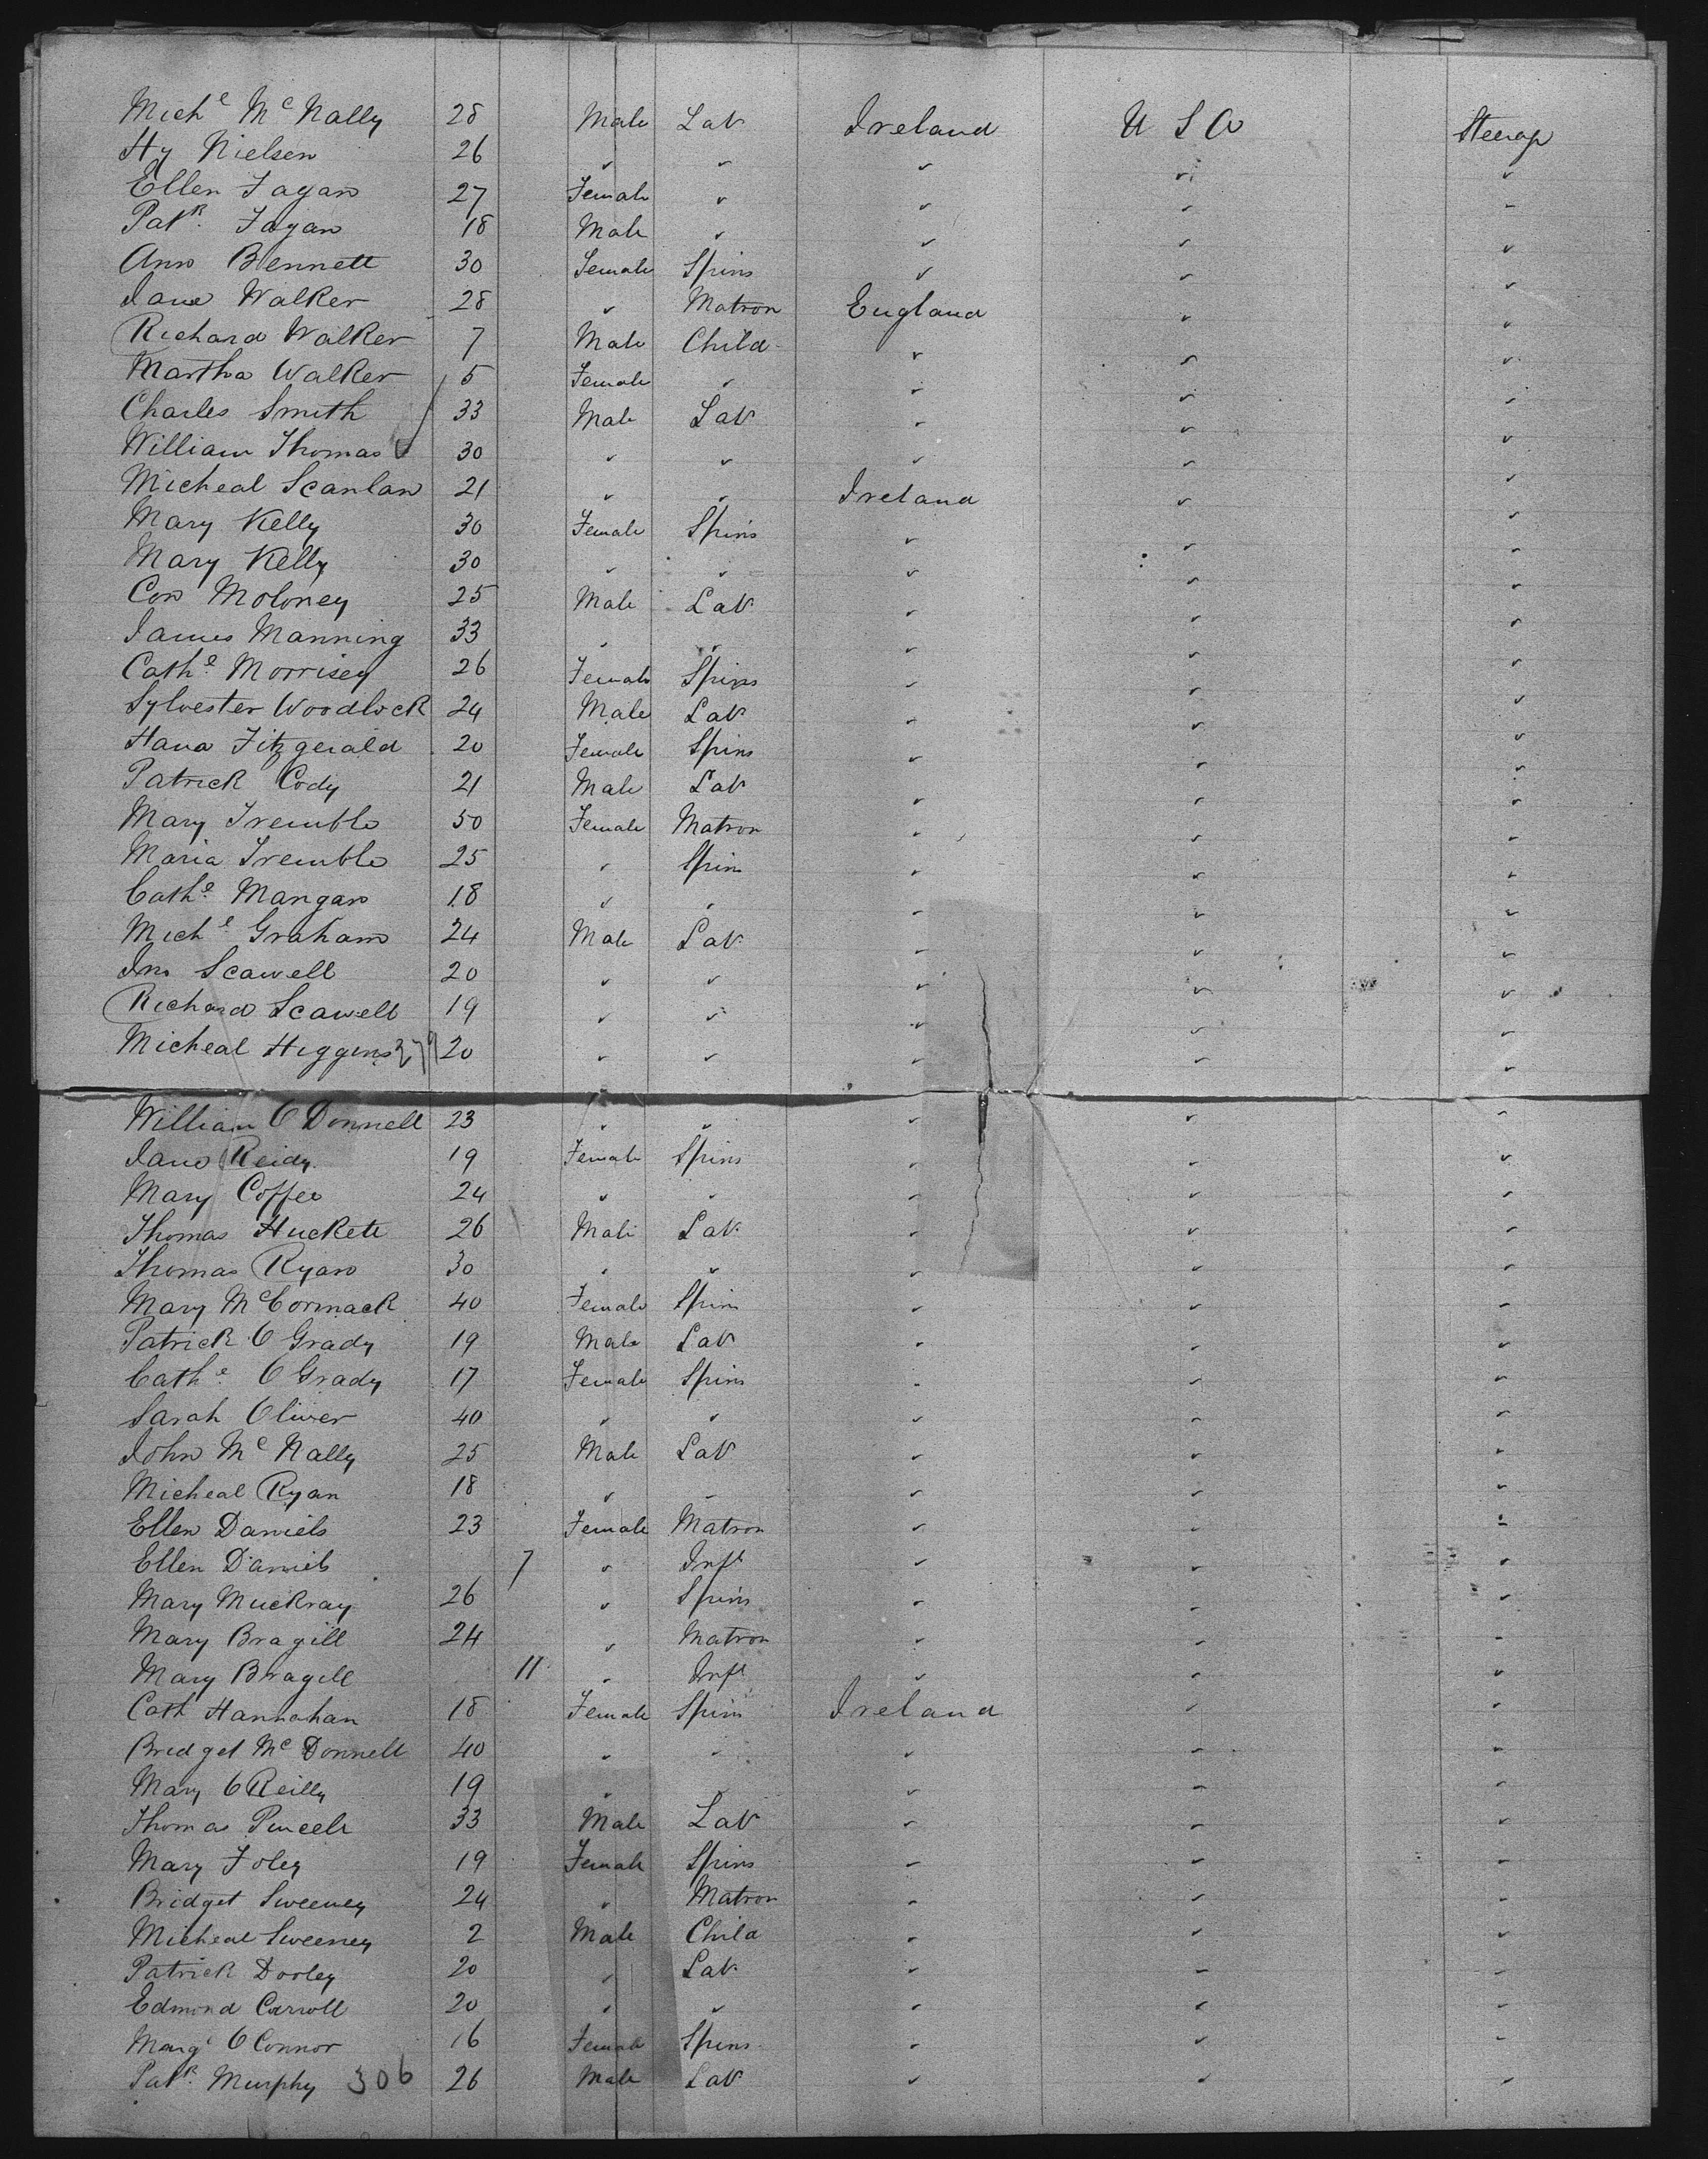 Mich^e M^c Nally 28 Male Lab Ireland U S A Steerage
Hy Nielsen 26 " " " " "
Ellen Fagan 27 Female " " " "
Pat^k Fagan 18 Male " " " "
Ann Bennett 30 Female Spins " " "
Jane Walker 28 " Matron England " "
Richard Walker 7 Male Child " " "
Martha Walker 5 Female " " " "
Charles Smith 33 Male Lab " " "
William Thomas 30 " " " " "
Micheal Scanlan 21 " " Ireland " "
Mary Kelly 30 Female Spins " " "
Mary Kelly 30 " " " " "
Con Moloney 25 Male Lab " " "
James Manning 33 " " " " "
Cath^e Morrisey 26 Female Spins " " "
Sylvester Woodlock 24 Male Lab " " "
Hana Fitzgerald 20 Female Spins " " "
Patrick Cody 21 Male Lab " " "
Mary Tremble 50 Female Matron " " "
Maria Tremble 25 " Spins " " "
Cath^e Mangan 18 " " " " "
Mich^l Graham 24 Male Lab " " "
Jno Scawell 20 " " " " "
Richard Scawell 19 " " " " "
Micheal Higgins 279 20 " " " " "
William O Donnell 23 " " " " "
Jane Reidy 19 Female Spins " " "
Mary Coffee 24 " " " " "
Thomas Huckett 26 Male Lab " " "
Thomas Ryan 30 " " " " "
Mary M^c Cormack 40 Female Spins " " "
Patrick O Grady 19 Male Lab " " "
Cath^e O Grady 17 Female Spins " " "
Sarah Oliver 40 " " " " "
John M^c Nally 25 Male Lab " " "
Micheal Ryan 18 " " " " "
Ellen Daniels 23 Female Matron " " "
Ellen Daniels 7 " Inft " " "
Mary Muckray 26 " Spins " " "
Mary Bragill 24 " Matron " " "
Mary Bragill 11 " Inft " " "
Cath Hannahan 18 Female Spins Ireland " "
Bridget M^c Donnell 40 " " " " "
Mary O Reilly 19 " " " " "
Thomas Purcell 33 Male Lab " " "
Mary Foley 19 Female Spins " " "
Bridget Sweeney 24 " Matron " " "
Micheal Sweeney 2 Male Child " " "
Patrick Dooley 20 " Lab " " "
Edmond Carroll 20 " " " " "
Marg^t O Connor 16 Female Spins " " "
Pat^k Murphy 306 26 Male Lab " " "